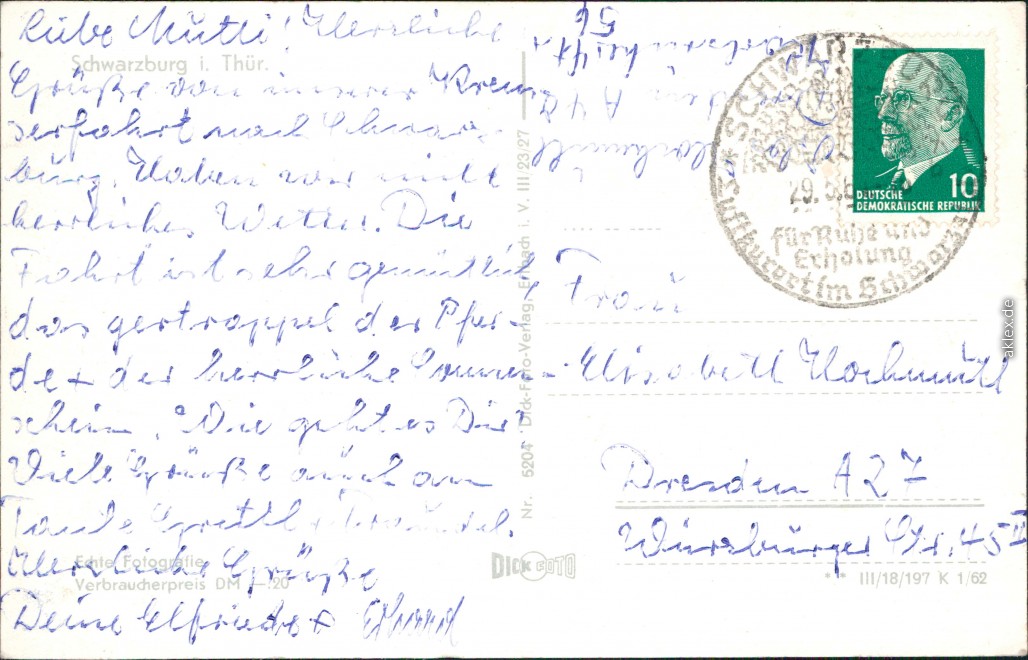 Liebe Mutti! Herzliche
Schwarzburg i. Thür.
Grüße von unserer Krem-
serfahrt nach Schwarz-
burg. Haben wir
herrliches Wetter. Die
Fahrt ist sehr gemütlich
das getrappel der Pfer-
de + der herrliche Sonnen-
schein. Wie geht es Dir
Viele Grüße auch an
Tante
Herzliche Grüße
Deine Elfriede +
Echte Fotografie
Verbraucherpreis DM —.20
Nr. 5204 Dick-Foto-Verlag, Erlbach i. V. III/23/27
DICK FOTO
SCHWARZBURG
29.
für Ruhe und
Erholung
Luftkurort im Schwarza
10
DEUTSCHE
DEMOKRATISCHE REPUBLIK
Frau
Elisabeth Hochmuth
Dresden A 27
Würzburger Str. 45 II
III/18/197 K 1/62
akpool.de